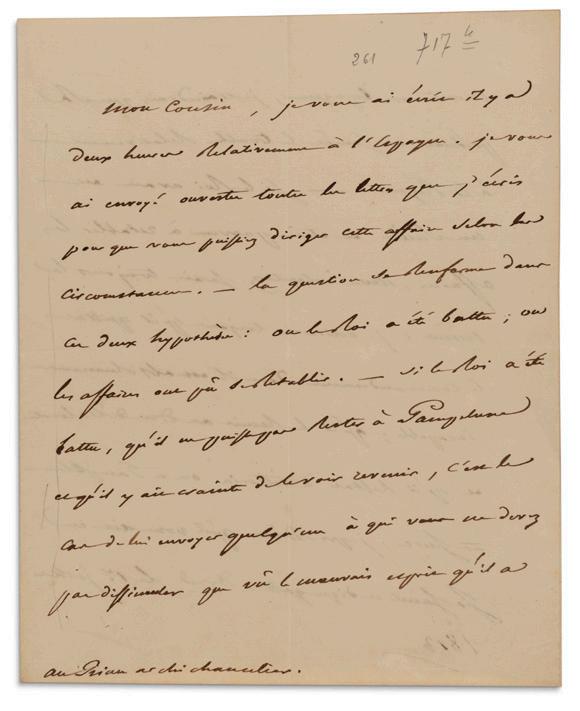 261 717 4
Mon Cousin, je vous ai écrit il y a
deux heures relativement à l'Espagne. je vous
ai envoyé ouvertes toutes les lettres que j'écris
pour que vous puissiez diriger cette affaire selon les
circonstances. — la question se renferme dans
ces deux hypothèses : ou le Roi a été battu ; ou
les affaires ont pû se rétablir. — si le Roi a été
battu, qu'il ne puisse pas rester à Pampelune
et qu'il y ait crainte de le voir revenir, c'est le
cas de lui envoyer quelqu'un à qui vous ne devez
pas dissimuler que vû le mauvais esprit qu'il a
au Prince archichancelier.